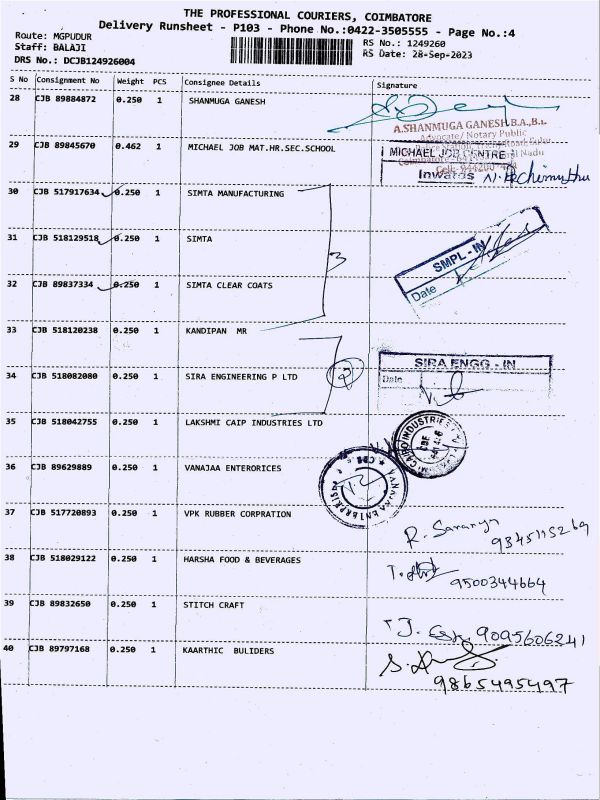 THE PROFESSIONAL COURIERS, COIMBATORE
Delivery Runsheet - P103 - Phone No.:0422-3505555 - Page No.:4
Route: MGPUDUR
Staff: BALAJI
DRS No.: DCJB124926004
RS No.: 1249260
RS Date: 28-Sep-2023
S No Consignment No Weight PCS Consignee Details Signature
28 CJB 89884872 0.250 1 SHANMUGA GANESH
A.SHANMUGA GANESH.B.A.,B.L.
Advocate/ Notary Public
29 CJB 89845670 0.462 1 MICHAEL JOB MAT.HR.SEC.SCHOOL
MICHAEL JOB CENTRE
Inwards
30 CJB 517917634 0.250 1 SIMTA MANUFACTURING
31 CJB 518129518 0.250 1 SIMTA
3
SMPL - IN
Date
32 CJB 89837334 0.250 1 SIMTA CLEAR COATS
33 CJB 518120238 0.250 1 KANDIPAN MR
34 CJB 518082080 0.250 1 SIRA ENGINEERING P LTD
2
SIRA ENGG - IN
Date
35 CJB 518042755 0.250 1 LAKSHMI CAIP INDUSTRIES LTD
36 CJB 89629889 0.250 1 VANAJAA ENTERORICES
VANAJAA ENTERPRISES
37 CJB 517720893 0.250 1 VPK RUBBER CORPRATION
R. Saranya
9345115269
38 CJB 518029122 0.250 1 HARSHA FOOD & BEVERAGES
9500344664
39 CJB 89832650 0.250 1 STITCH CRAFT
9095606241
40 CJB 89797168 0.250 1 KAARTHIC BULIDERS
9865495497